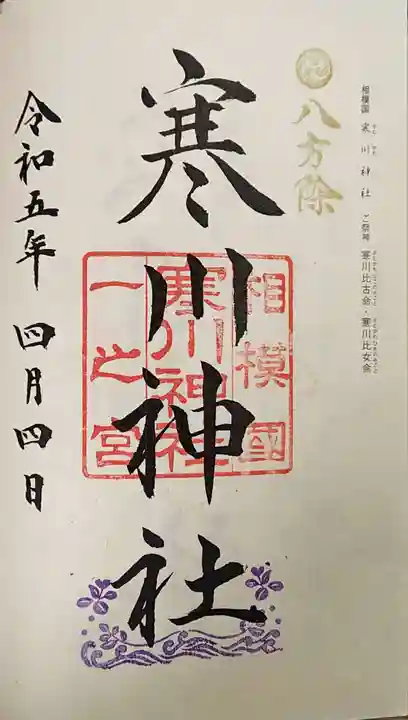 相模国 寒川神社 ご祭神 寒川比古命・寒川比女命
八方除
寒川神社
相模國
寒川神社
一之宮
令和五年 四月四日